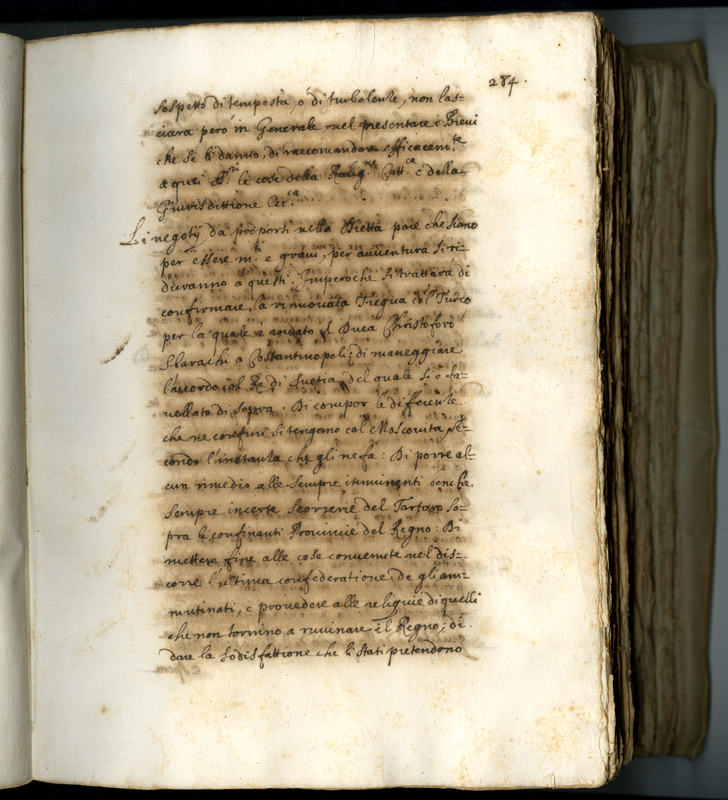 284.
sospetto di tempesta, ó di turbolente, non las-
ciara peró in Generale nel presentare i Brevi
che se li danno, di raccomandare efficacem.te
a quei SS.ri le cose della Relig.ne Catt.ca e della
Giurisdittione Ecc.ca
Li negotij da proporsi nella Dietta pare che siano
per essere m.ti e gravi, per avventura si ri-
duranno a questi. Imperoche si trattará di
confirmare la rinnovata Tregua col Turco
per la quale è andato il Duca Christoforo
Sbarachi a Costantinopoli; di maneggiare
l'accordo col Ré di Suetia, del quale si è fa-
vellato di sopra. Di compor le differente
che ne confini si tengano col Moscovita se-
condo l'instanta che gli ne fa: Di porre al-
cun rimedio alle sempre imminenti benche
sempre incerte scorrerie del Tartaro so-
pra le confinanti Provincie del Regno: Di
mettere fine alle cose convenute nel dis-
corre l'ultima confederatione de gli am-
mutinati, e provedere alle reliquie di quelli
che non tornino a ruuinare il Regno; di
dare la sodisfattione che li stati pretendono